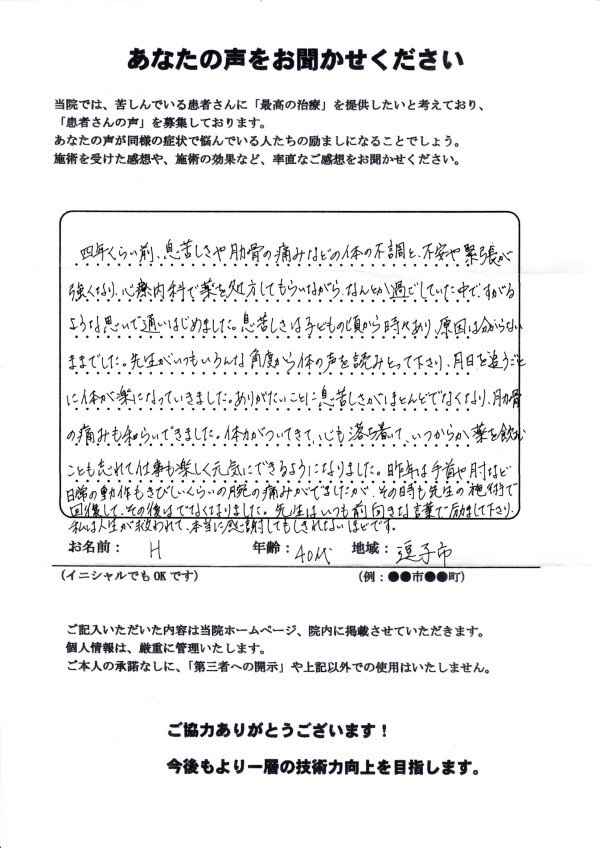 あなたの声をお聞かせください
当院では、苦しんでいる患者さんに「最高の治療」を提供したいと考えており、
「患者さんの声」を募集しております。
あなたの声が同様の症状で悩んでいる人たちの励ましになることでしょう。
施術を受けた感想や、施術の効果など、率直なご感想をお聞かせください。
四年くらい前、息苦しさや肋骨の痛みなどの体の不調と、不安や緊張が
強くなり、心療内科で薬を処方してもらいながら、なんとか過ごしていた中で、すがる
ような思いで通いはじめました。息苦しさは子どもの頃から時々あり、原因は分からない
ままでした。先生がいつもいろんな角度から体の声を読みとって下さり、月日を追うごと
に体が楽になっていきました。ありがたいことに息苦しさがほとんどでなくなり、肋骨
の痛みも和らいできました。体力がついてきて、心も落ち着いて、いつからか薬を飲む
ことも忘れて仕事も楽しく元気にできるようになりました。昨年は手首や肘など
日常の動作もきびしいくらいの腕の痛みがでましたが、その時も先生の施術で
回復して、その後はでなくなりました。先生はいつも前向きな言葉で励まして下さり、
私は人生が救われて、本当に感謝してもしきれないほどです。
お名前： H 年齢： 40代 地域： 逗子市
（イニシャルでもOKです） （例：●●市●●町）
ご記入いただいた内容は当院ホームページ、院内に掲載させていただきます。
個人情報は、厳重に管理いたします。
ご本人の承諾なしに、「第三者への開示」や上記以外での使用はいたしません。
ご協力ありがとうございます！
今後もより一層の技術力向上を目指します。